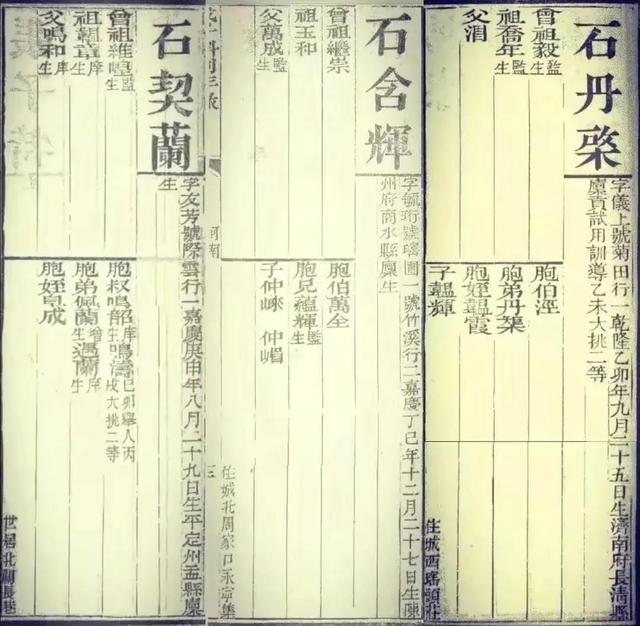 石丹
字儀上號菊田行一乾隆乙卯年九月二十五日生濟南府長清縣
廩貢試用訓導乙未大挑二等
曾祖毅監生
祖喬年監生
父涓
胞伯涇
胞弟丹
胞姪韞霞
子韞輝
住城西頭庄
石含輝
字毓珩號瑤圃一號竹溪行二嘉慶丁巳年十二月二十七日生陳
州府商水縣廩生
曾祖繼崇
祖玉和
父萬成監生
胞伯萬全
胞兄蘊輝監生
子仲崍 仲嵋
住城北周家口永寧集
河南
三
石契蘭
字友芳號際雲行一嘉慶庚申年八月二十九日生平定州盂縣廩
生
曾祖維監生
祖朝章庠生
父鳴和庠生
胞叔鳴韶庠生鳴濤己卯舉人丙戌大挑二等
胞弟佩蘭增生遇蘭庠生
胞姪阜成
世居北關長巷